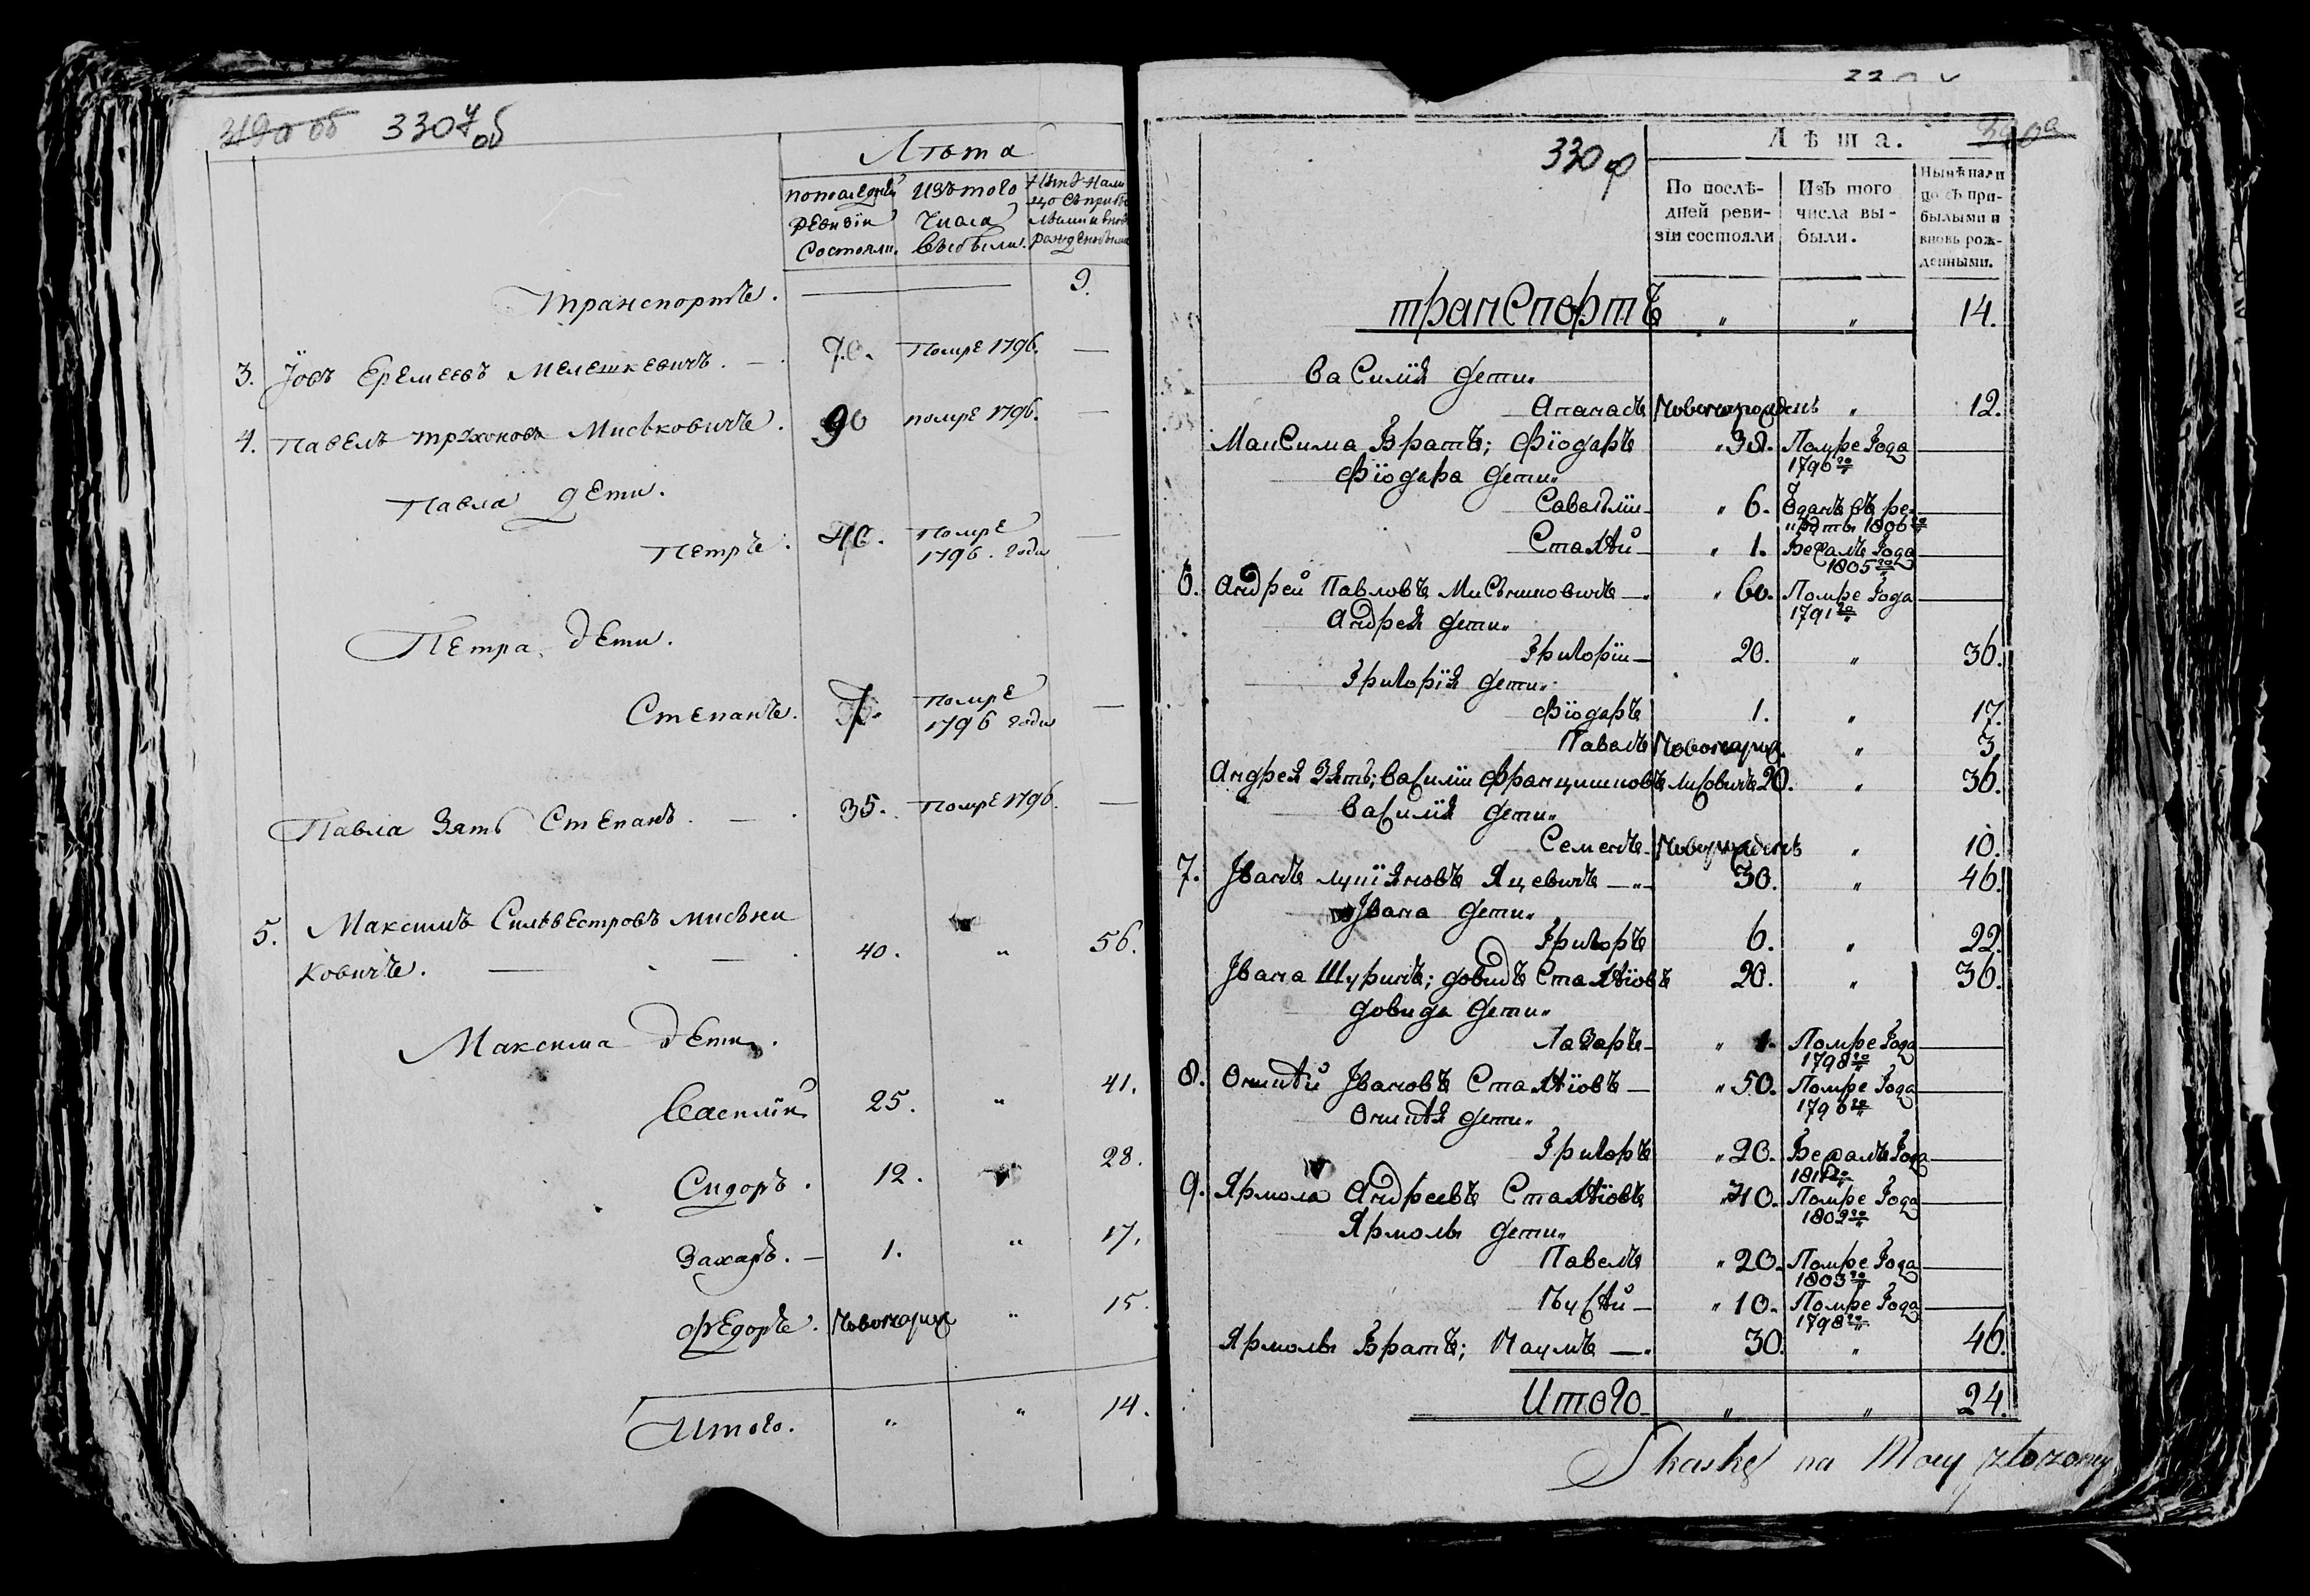 319а об 330 у об
Лѣта
по последней ревизіи состояли. изъ того числа выбыли. Нынѣ нали цо съ прибы лыми и вновь рожденными
транспортъ. 9.
3. Іовъ Еремеевъ Мелешкевичъ. — 70. помре 1796. —
4. Павелъ трихоновъ Миськовичъ. 90 помре 1796. —
Павла дети.
Петръ. 40. помре
1796. года —
Петра дети.
Степанъ. 7. помре
1796 года —
Павла Зять Степанъ. — 35. помре 1796. —
5. Максимъ Сильвестровъ мисьни
ковичъ. — 40. „ 56.
Максима дети.
Василій 25. „ 41.
Сидоръ. 12. 28.
Захаръ. — 1. „ 17.
Федоръ. Новонарож „ 15.
Итого. „ „ 14.
330 ф
Лѣта.
По послѣ-
дней реви-
зіи состояли
Изъ того
числа вы-
были.
Нынѣ нали
цо съ при-
былыми и
вновь рож-
денными.
транспортъ „ „ 14.
василія дети.
Апанасъ Новонарожденъ „ 12.
Максима Братъ; Фіодаръ „ 38. Помре Года
1796го
Фіодара дети.
Савастіи „ 6. Оданъ въ ре-
круты 1806го
Стахѣй „ 1. Бежалъ Года
1805го
6. Андрей Павловъ Мисьниковичъ —. „ 60. Помре Года
1791го
Андрея дети.
Григоріи — 20. „ 36.
Григорія дети.
Фіодаръ 1. „ 17.
Павелъ Новонарожд. „ 3.
Андрея Зять; василіи Францишковъ Лисовичъ 20. „ 36.
василія дети.
Семенъ Новорожденъ „ 10.
7. Іванъ лукіяновъ Яцевичъ — 30. „ 46.
Івана дети.
Григоръ 6. „ 22.
Івана Шуринъ; довидъ Стахѣіовъ 20. „ 36.
довида дети.
Лазаръ „ 1. Помре Года
1798го
8. Івановъ Стахѣіовъ — „ 50. Помре Года
1796го
дети.
Григоръ „ 20. Бежалъ Года
9. Ярмола Андреевъ Стахѣіовъ „ 40. Помре Года
1802го
Ярмолы дети.
Павелъ „ 20. Помре Года
1803го
„ 10. Помре Года
1798го
Ярмолы Братъ; Наумъ —. 30. „ 46.
Итого „ „ 24.
Skaskę na Mocy złożoney